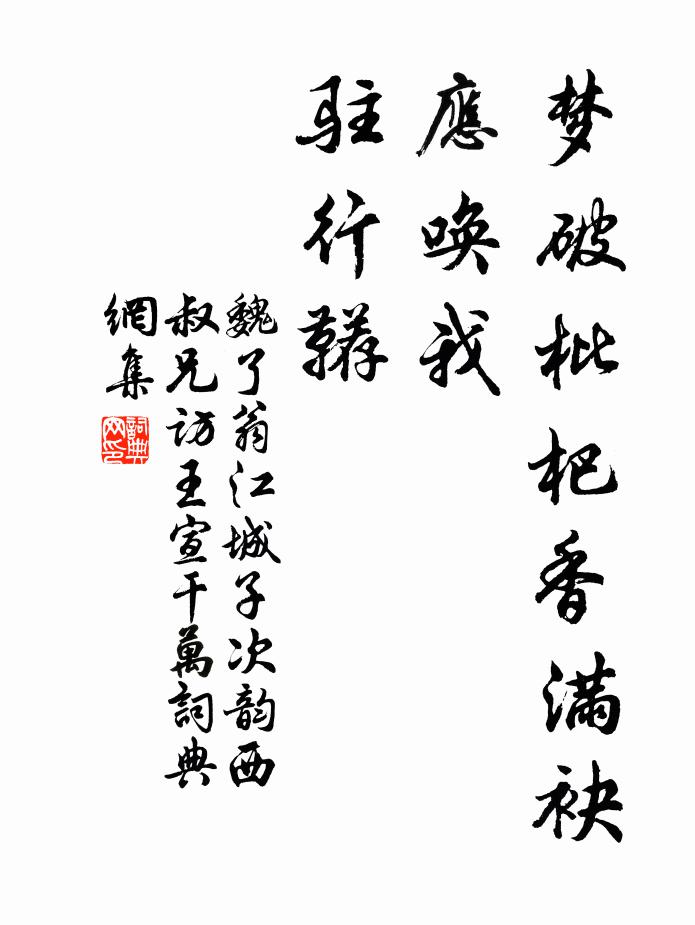 梦破枇杷香满袂
應喚我
駐行鞯
魏了翁江城子次韵西
叔兄访王宣干萬詞典
網集
詞典
网印